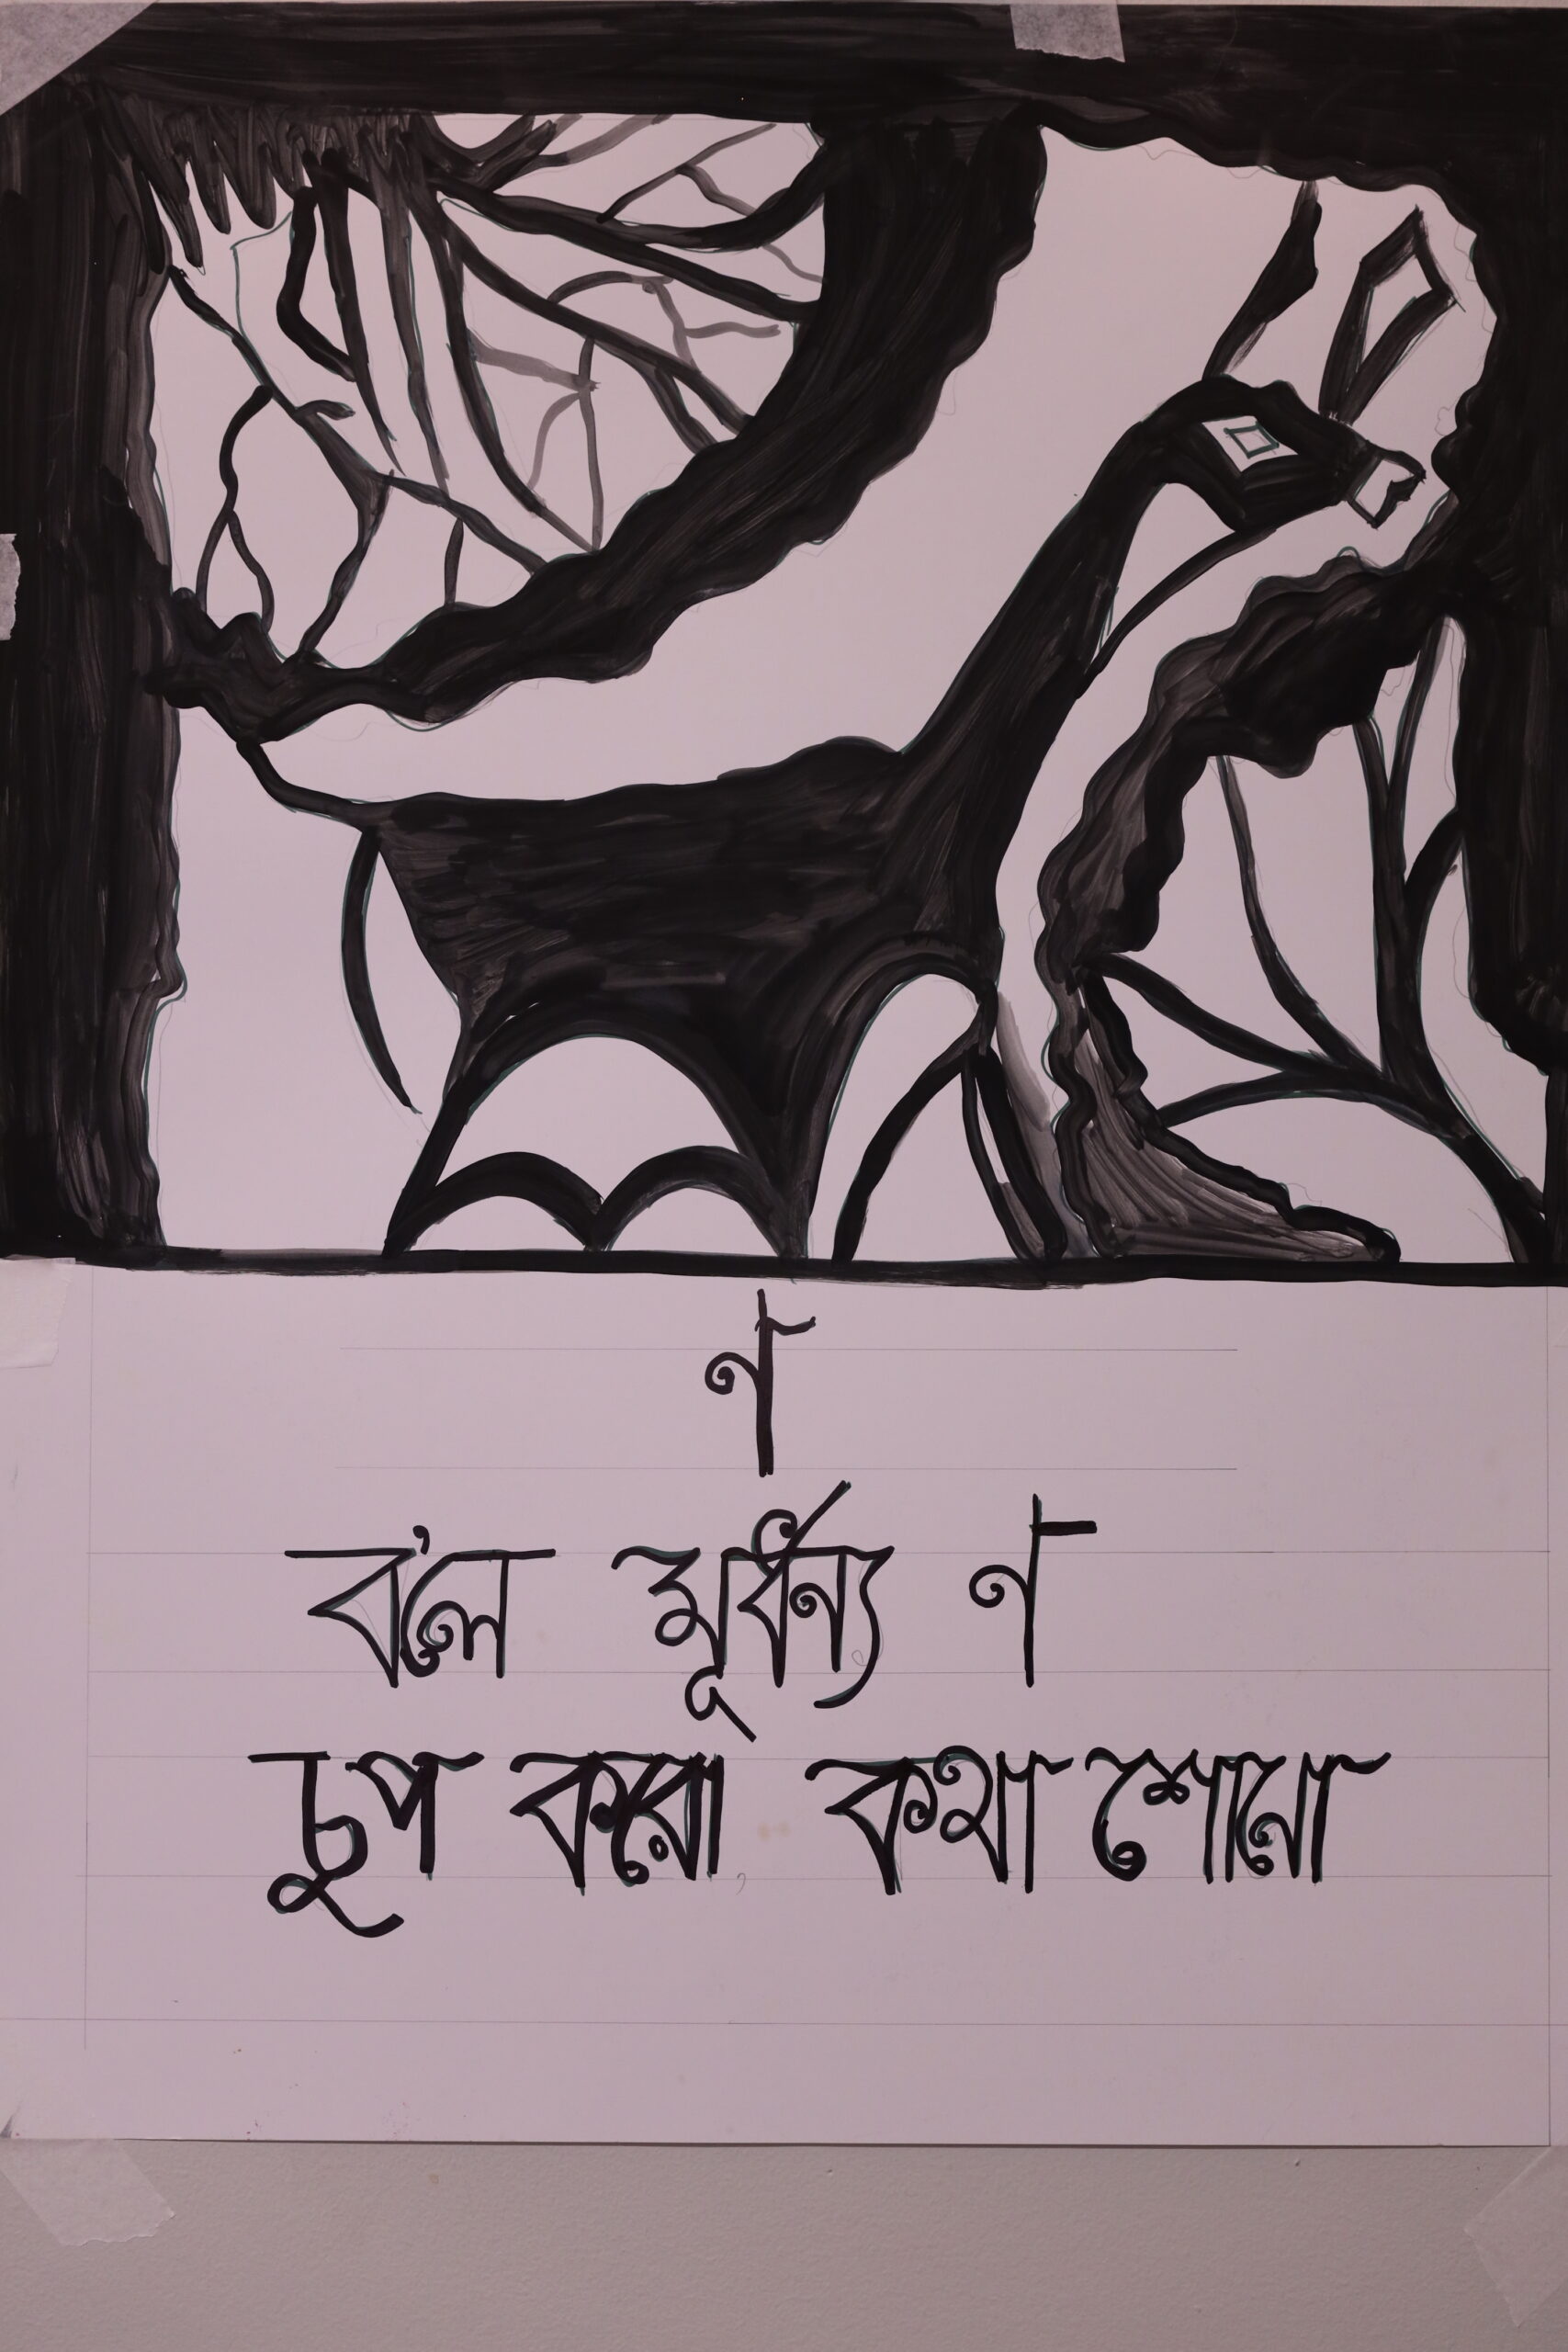 ণ
ব'লে মূর্ধন্য ণ
চুপ করো কথা শোনো